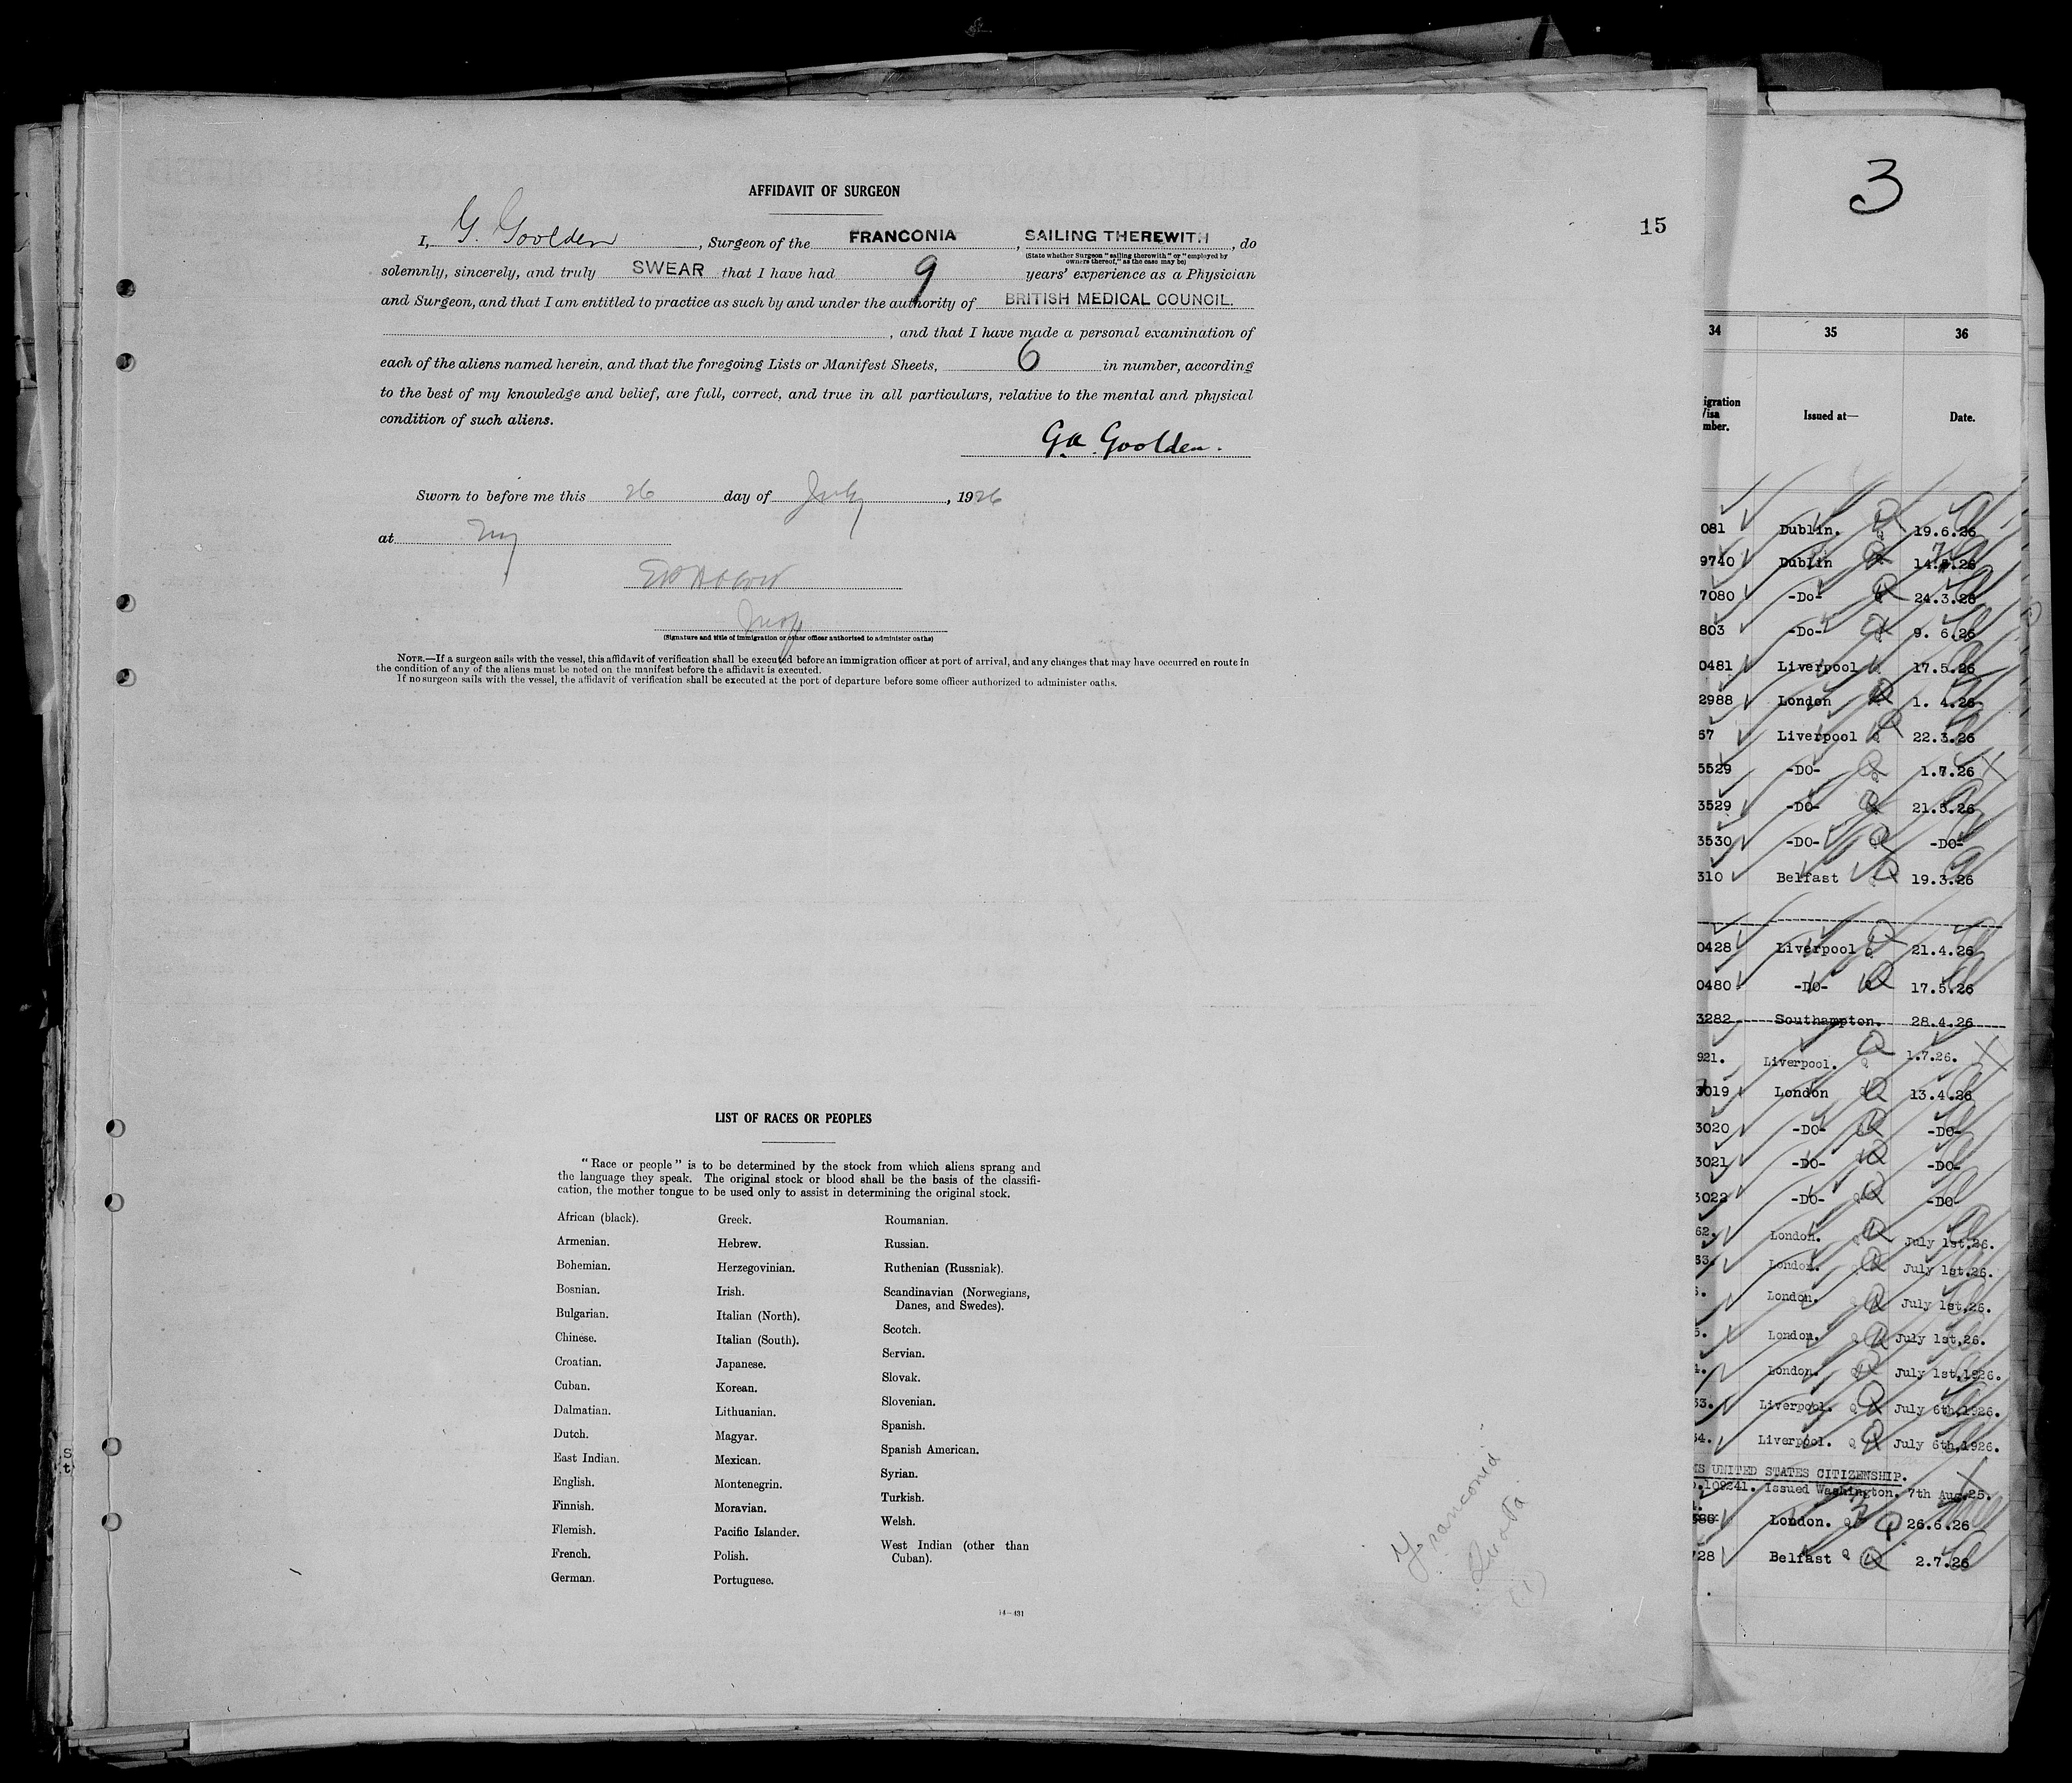 AFFIDAVIT OF SURGEON
15
I, G. Goolden, Surgeon of the FRANCONIA, SAILING THEREWITH, do
(State whether Surgeon "sailing therewith" or "employed by
owners thereof," as the case may be)
solemnly, sincerely, and truly SWEAR that I have had 9 years' experience as a Physician
and Surgeon, and that I am entitled to practice as such by and under the authority of BRITISH MEDICAL COUNCIL.
, and that I have made a personal examination of
each of the aliens named herein, and that the foregoing Lists or Manifest Sheets, 6 in number, according
to the best of my knowledge and belief, are full, correct, and true in all particulars, relative to the mental and physical
condition of such aliens.
Ga. Goolden.
Sworn to before me this 26 day of July, 1926
at Ny
(Signature and title of immigration or other officer authorized to administer oaths)
NOTE.—If a surgeon sails with the vessel, this affidavit of verification shall be executed before an immigration officer at port of arrival, and any changes that may have occurred en route in
the condition of any of the aliens must be noted on the manifest before the affidavit is executed.
If no surgeon sails with the vessel, the affidavit of verification shall be executed at the port of departure before some officer authorized to administer oaths.
LIST OF RACES OR PEOPLES
"Race or people" is to be determined by the stock from which aliens sprang and
the language they speak. The original stock or blood shall be the basis of the classifi-
cation, the mother tongue to be used only to assist in determining the original stock.
African (black).
Armenian.
Bohemian.
Bosnian.
Bulgarian.
Chinese.
Croatian.
Cuban.
Dalmatian.
Dutch.
East Indian.
English.
Finnish.
Flemish.
French.
German.
Greek.
Hebrew.
Herzegovinian.
Irish.
Italian (North).
Italian (South).
Japanese.
Korean.
Lithuanian.
Magyar.
Mexican.
Montenegrin.
Moravian.
Pacific Islander.
Polish.
Portuguese.
Roumanian.
Russian.
Ruthenian (Russniak).
Scandinavian (Norwegians,
Danes, and Swedes).
Scotch.
Servian.
Slovak.
Slovenian.
Spanish.
Spanish American.
Syrian.
Turkish.
Welsh.
West Indian (other than
Cuban).
14—431
Franconia
Quota
(1)
3
34 35 36
igration
Visa
mber.
Issued at—
Date.
081 Dublin. 19.6.26
9740 Dublin 14.7.26
7080 -Do- 24.3.26
803 -Do- 9. 6.26
0481 Liverpool 17.5.26
2988 London 1. 4.26
67 Liverpool 22.3.26
5529 -DO- 1.7.26
3529 -DO- 21.5.26
3530 -DO- -DO-
310 Belfast 19.3.26
0428 Liverpool 21.4.26
0480 -DO- 17.5.26
3282 Southampton. 28.4.26
921. Liverpool. 1.7.26.
3019 London 13.4.26
3020 -DO- -DO-
3021 -DO- -DO-
3022 -DO- -DO-
62. London. July 1st.26.
63. London. July 1st.26.
London. July 1st.26.
5. London. July 1st.26.
4. London. July 1st.1926.
33. Liverpool. July 6th.1926.
34. Liverpool. July 6th.1926.
MS UNITED STATES CITIZENSHIP.
109241. Issued Washington. 7th Aug.25.
London. 26.6.26
728 Belfast 2.7.26